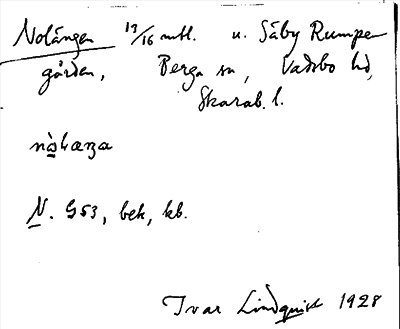 Nolängen 17/16 mtl. u. Säby Rumpe-
gården, Berga sn, Vadsbo hd,
Skarab. l.
nòlæŋa
N. G53, bek, kb.
Ivar Lindquist 1928